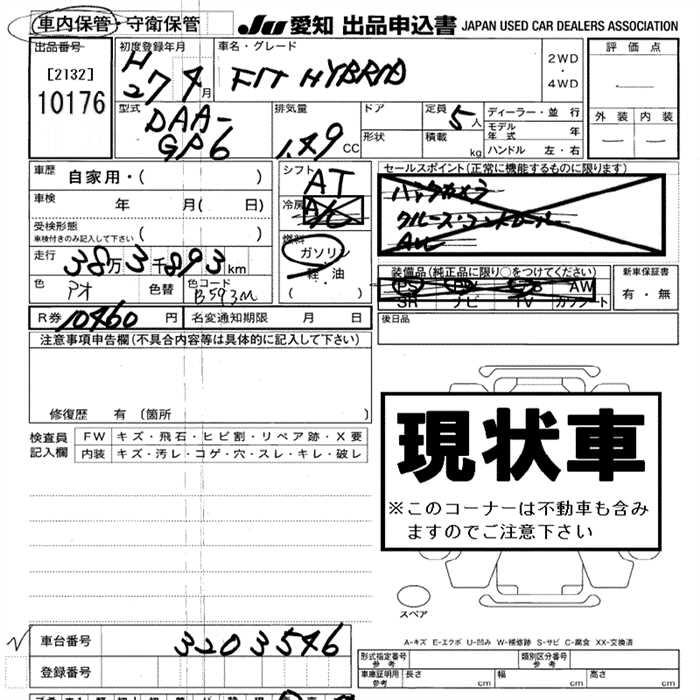 車内保管・守衛保管 JU 愛知 出品申込書 JAPAN USED CAR DEALERS ASSOCIATION
出品番号
[2132]
10176
初度登録年月
H
27 4 月
車名・グレード
FIT HYBRID
2WD
・
4WD
評価点
外装 内装
型式
DAA-
GP6
排気量
1.49 CC
ドア
形状
定員 5 人
積載 kg
ディーラー・並行
モデル年式 年
ハンドル 左・右
車歴 自家用・( )
車検 年 月( 日)
受検形態
車検付きのみ記入して下さい ( )
走行 38万3千893km
色 アオ 色替 色コード B593M
シフト AT
冷房 A/C
燃料
ガソリン
軽・油
( )
セールスポイント(正常に機能するものに限ります)
バックカメラ
クルーズ・コントロール
AW
装備品(純正品に限り○をつけてください)
PS PW AW
SR ナビ TV カワシート
新車保証書
有・無
R券 10460 円 名変通知期限 月 日
後日品
注意事項申告欄(不具合内容等は具体的に記入して下さい)
修復歴 有〔箇所 〕
検査員
記入欄
FW キズ・飛石・ヒビ割・リペア跡・X要
内装 キズ・汚レ・コゲ・穴・スレ・キレ・破レ
現状車
※このコーナーは不動車も含み
ますのでご注意下さい
スペア
A-キズ E-エクボ U-凹み W-補修跡 S-サビ C-腐食 XX-交換済
車台番号 3203546
登録番号
形式指定番号
参考
類別区分番号
参考
車庫証明用
参考
長さ cm 幅 cm 高さ cm